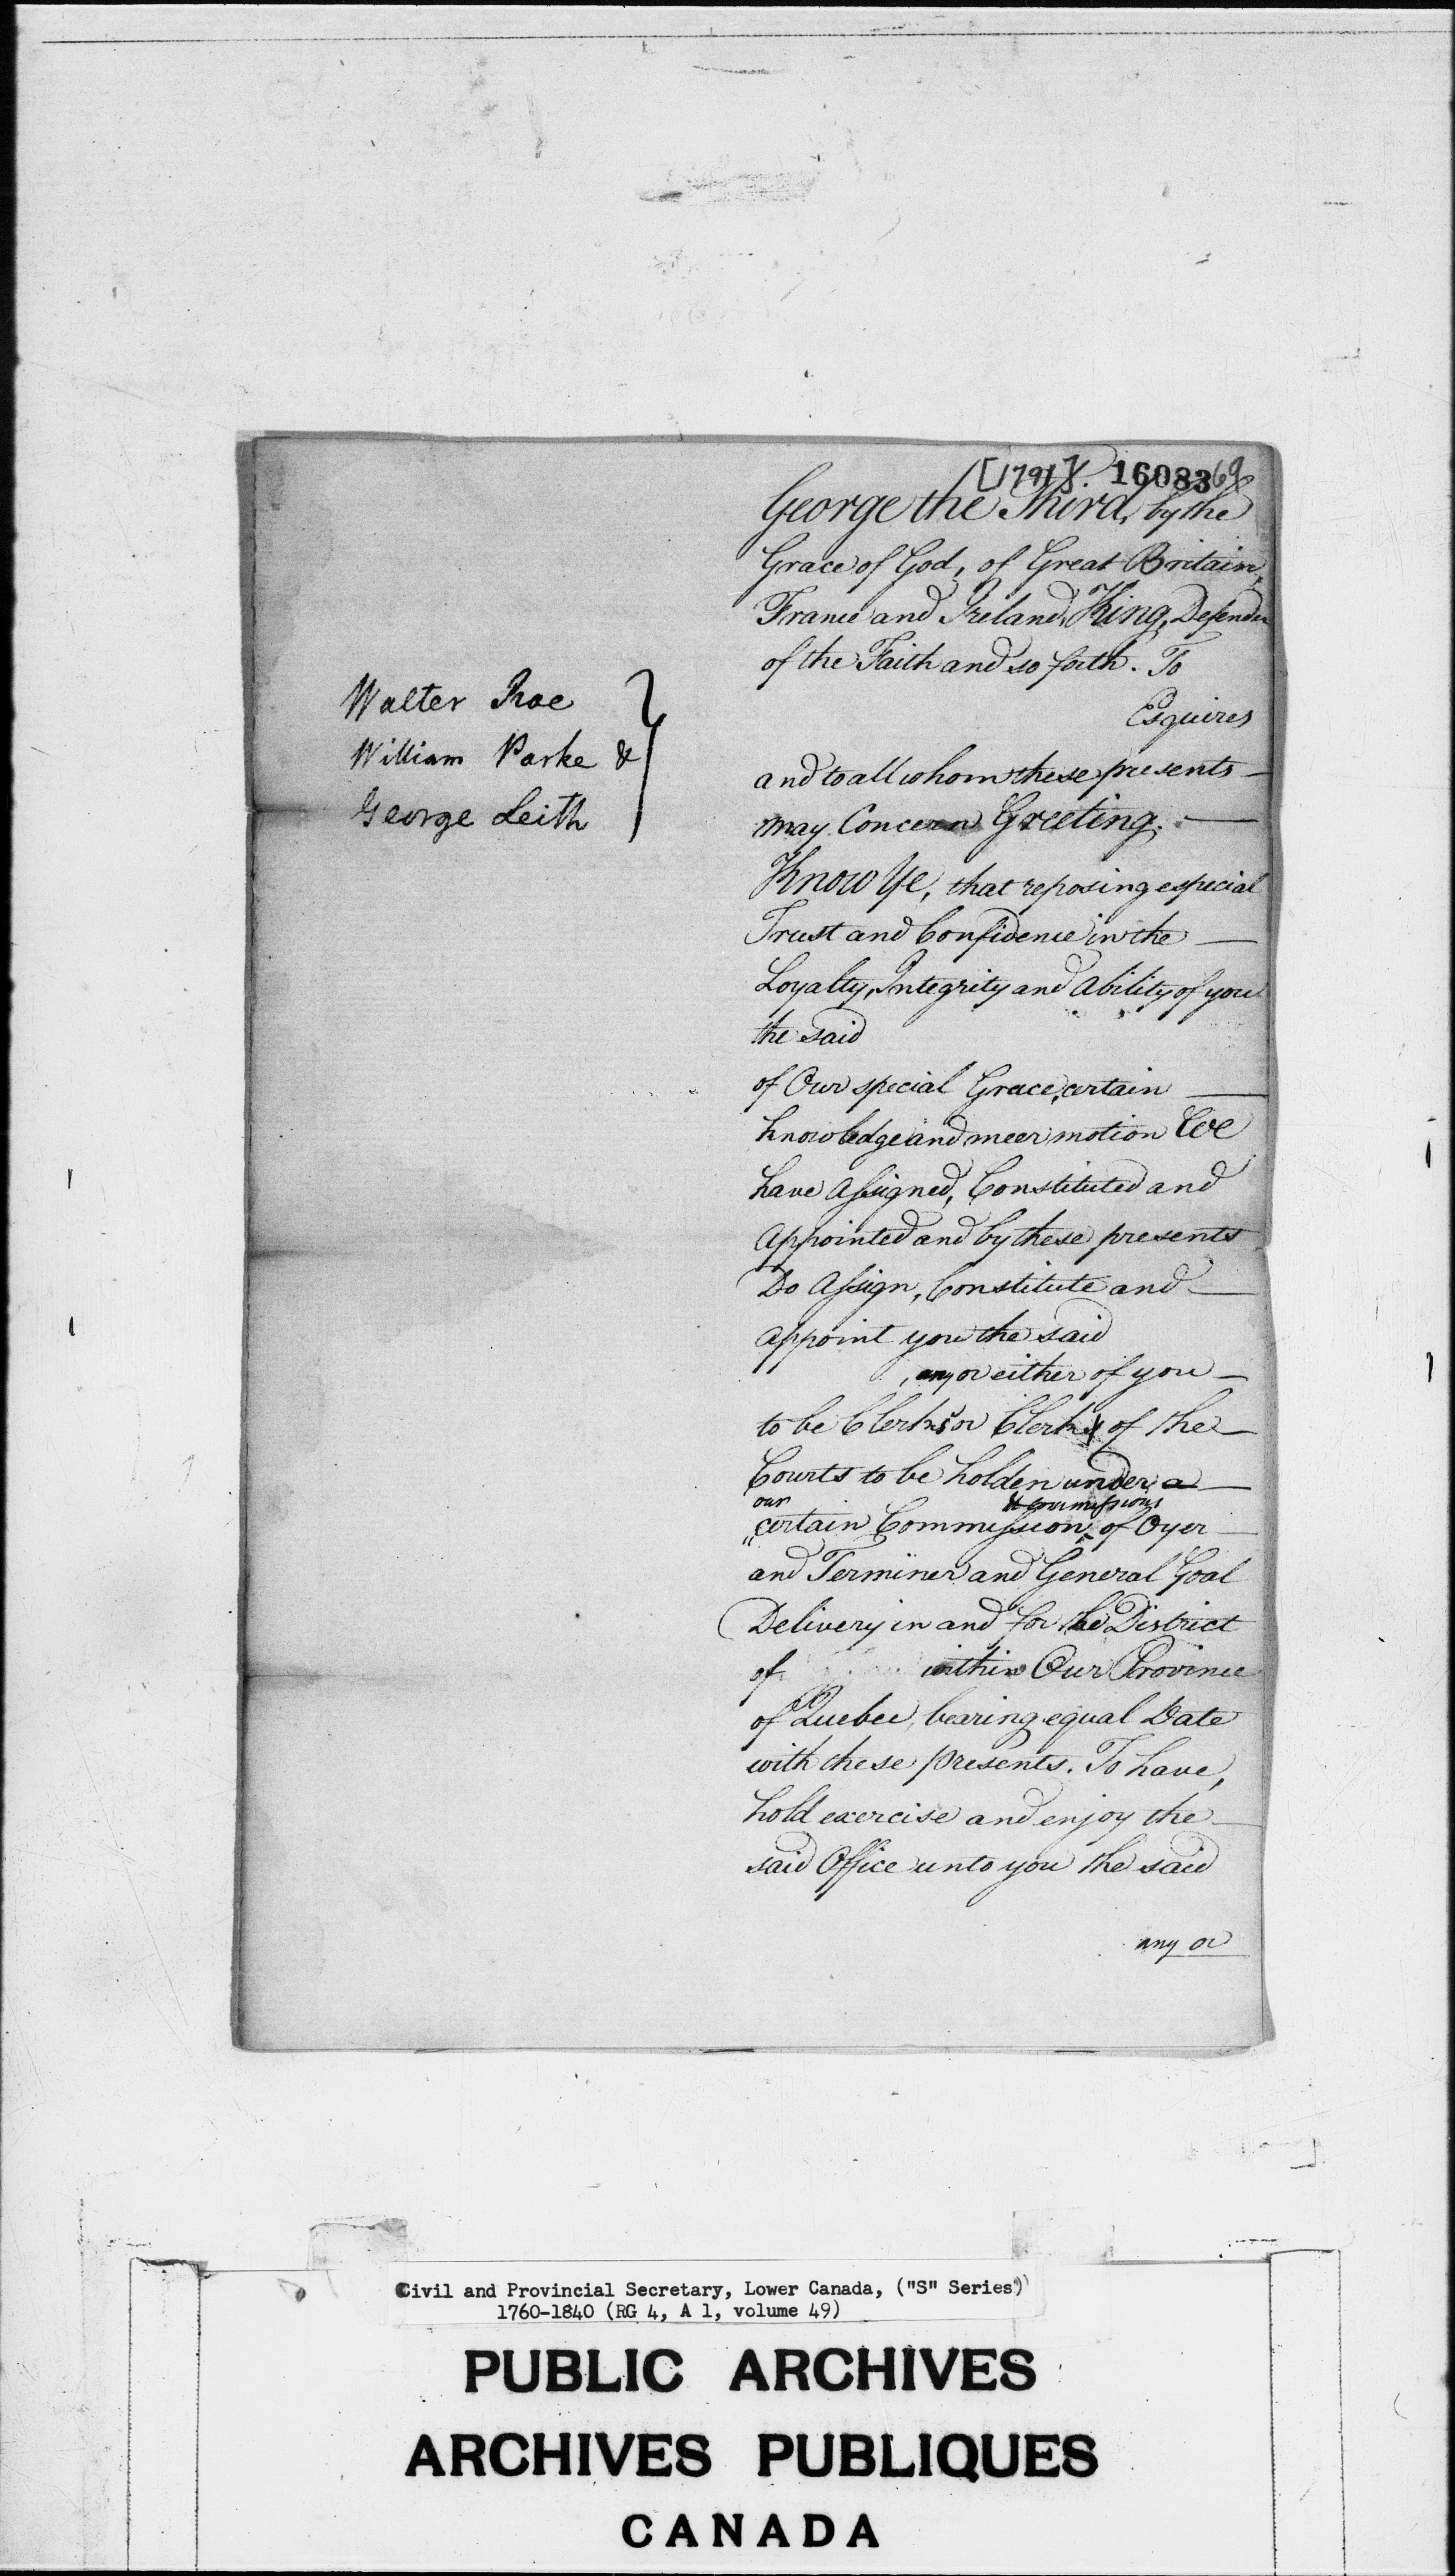 [1791]. 16083 69
George the Third, by the
Grace of God, of Great Britain,
France and Ireland, King, Defender
of the Faith and so forth. To
Esquires
Walter Roe
William Parke &
George Leith
and to all whom these presents
may Concern Greeting.
Know Ye, that reposing especial
Trust and Confidence in the
Loyalty, Integrity and Ability of you
the said
of Our special Grace, certain
knowledge and meer motion We
have Assigned, Constituted and
Appointed and by these presents
Do Assign, Constitute and
appoint you the said
, any or either of you
to be Clerks or Clerk of the
Courts to be holden under a
our & commissions
certain Commission of Oyer
and Terminer and General Goal
Delivery in and for the District
of within Our Province
of Quebec, bearing equal Date
with these presents. To have,
hold exercise and enjoy the
said Office unto you the said
any or
Civil and Provincial Secretary, Lower Canada, ("S" Series)
1760-1840 (RG 4, A 1, volume 49)
PUBLIC ARCHIVES
ARCHIVES PUBLIQUES
CANADA